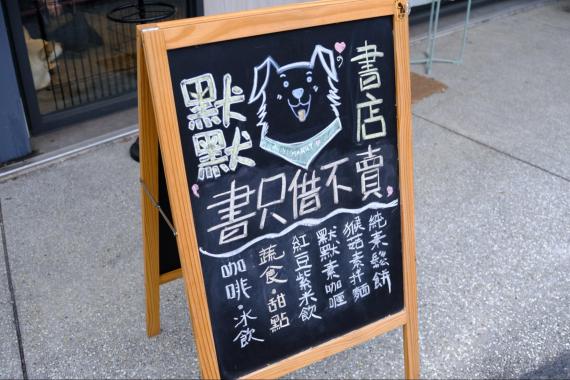 默默
書店
書只借不賣
純素鬆餅
猴菇素拌麵
默默素咖喱
紅豆紫米飲
蔬食·甜點
咖啡·冰飲